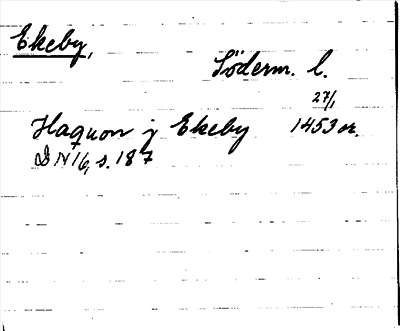 Ekeby,
Söderm. l.
27/1
Haquon j Ekeby 1453 or.
DN 16, s. 187